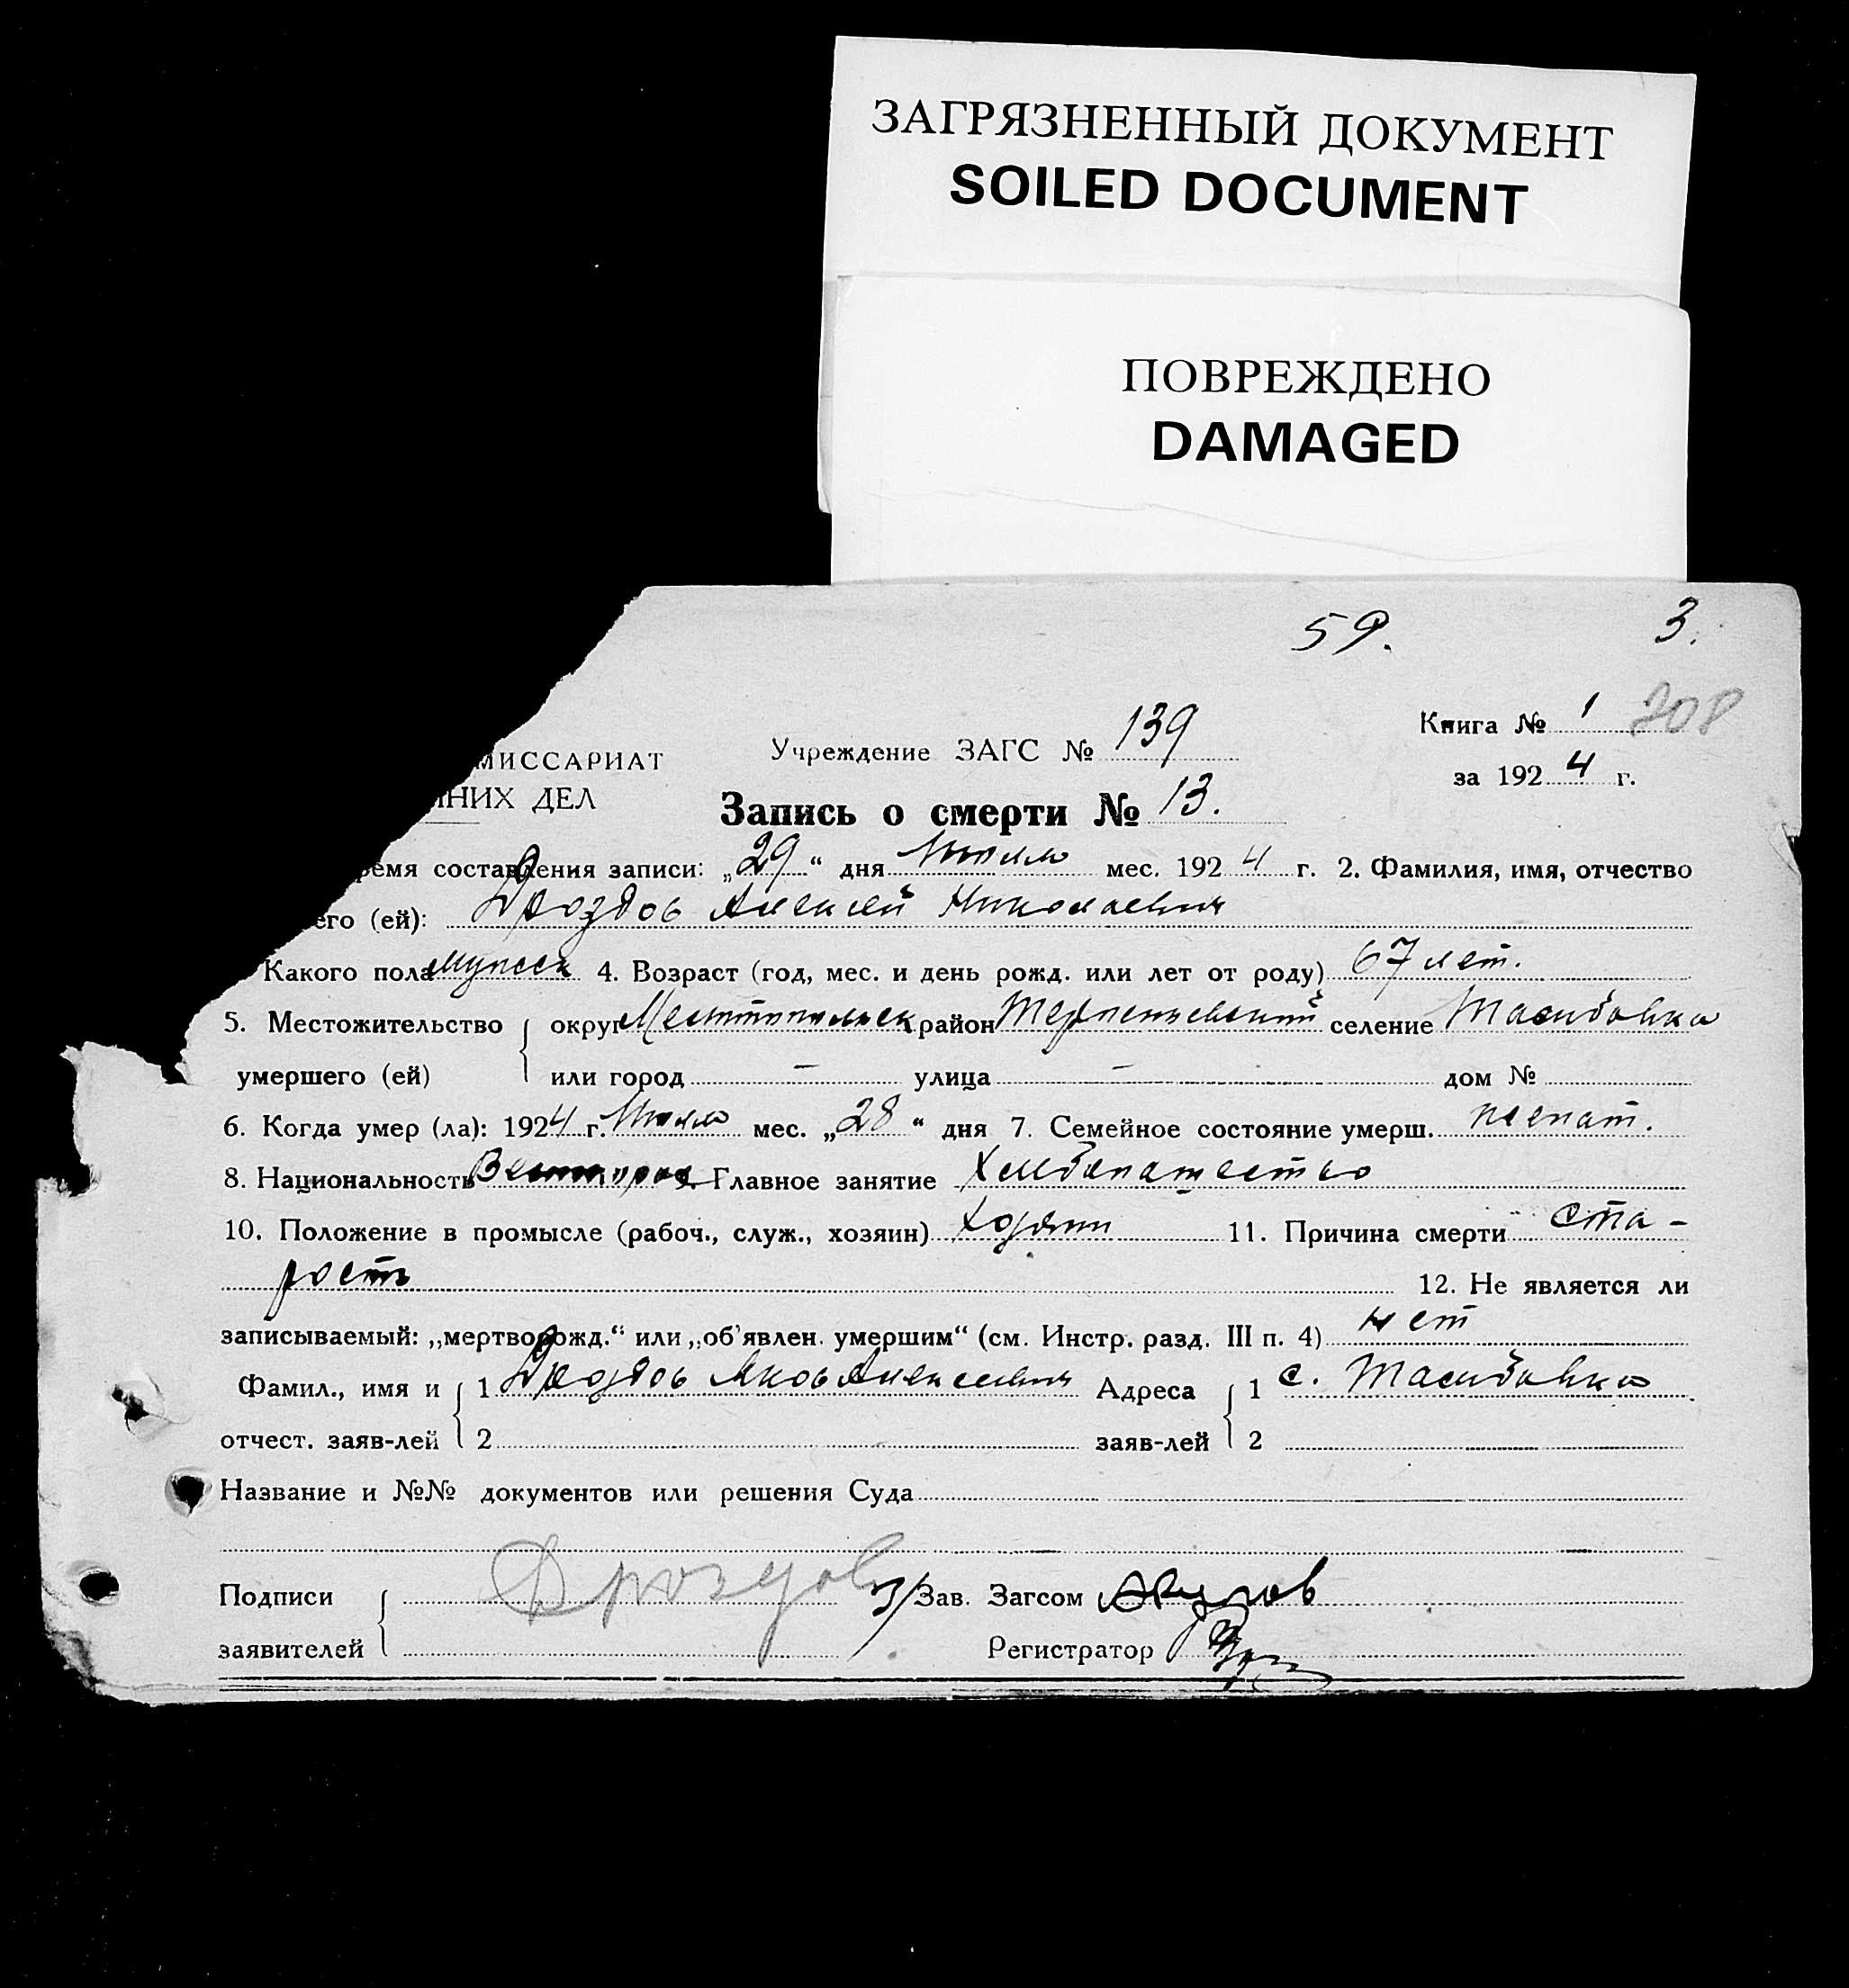 ЗАГРЯЗНЕННЫЙ ДОКУМЕНТ
SOILED DOCUMENT
ПОВРЕЖДЕНО
DAMAGED
59. 3.
Книга № 1 208
МИССАРИАТ Учреждение ЗАГС № 139
за 1924 г.
ННИХ ДЕЛ Запись о смерти № 13.
ремя составления записи: „29“ дня Июля мес. 1924 г. 2. Фамилия, имя, отчество
его (ей): Дроздов Алексей Николаевич
Какого пола мужск 4. Возраст (год, мес. и день рожд. или лет от роду) 67 лет.
5. Местожительство округ район Терпеньевский селение
умершего (ей) или город — улица — дом №
6. Когда умер (ла): 1924 г. Июля мес. „28“ дня 7. Семейное состояние умерш. женат.
8. Национальность 9. Главное занятие Хлебопашество
10. Положение в промысле (рабоч., служ., хозяин) хозяин 11. Причина смерти ста-
рость 12. Не является ли
записываемый: „мертворожд.“ или „об'явлен. умершим“ (см. Инстр. разд. III п. 4) нет
Фамил., имя и 1 Дроздов Яков Алексеевич Адреса 1 с.
отчест. заяв-лей 2 заяв-лей 2
Название и №№ документов или решения Суда
Подписи Дроздов З/Зав. Загсом
заявителей Регистратор